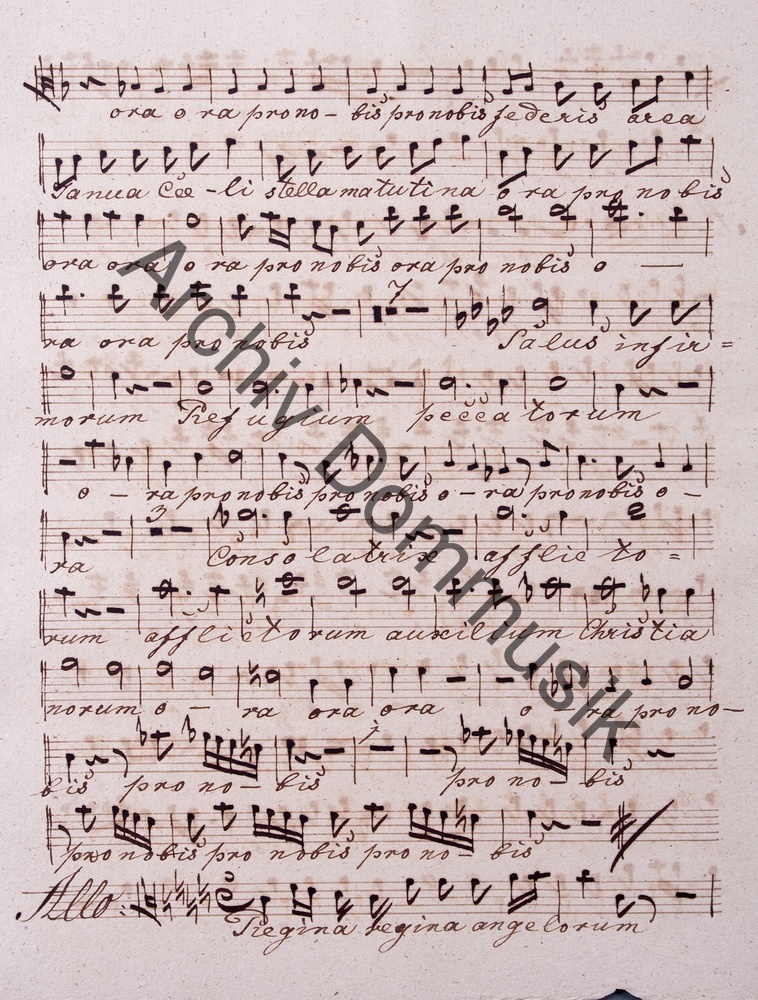 ora o ra pro no - bis pro nobis federis arca
Janua Cœ - li stella matutina o ra pro no bis
ora ora o ra pro nobis ora pro nobis o —
ra ora pro nobis 7 Salus infir =
morum Refugium peccatorum
o - ra pro nobis pro nobis o - ra pro nobis o -
ra 3 Consolatrix afflic to =
rum afflictorum auxilium Christia
norum o - ra ora ora o ra pro no -
bis pro no - bis pro no - bis
pro nobis pro nobis pro no - bis
Allo: Regina regina angelorum
Archiv Dommusik